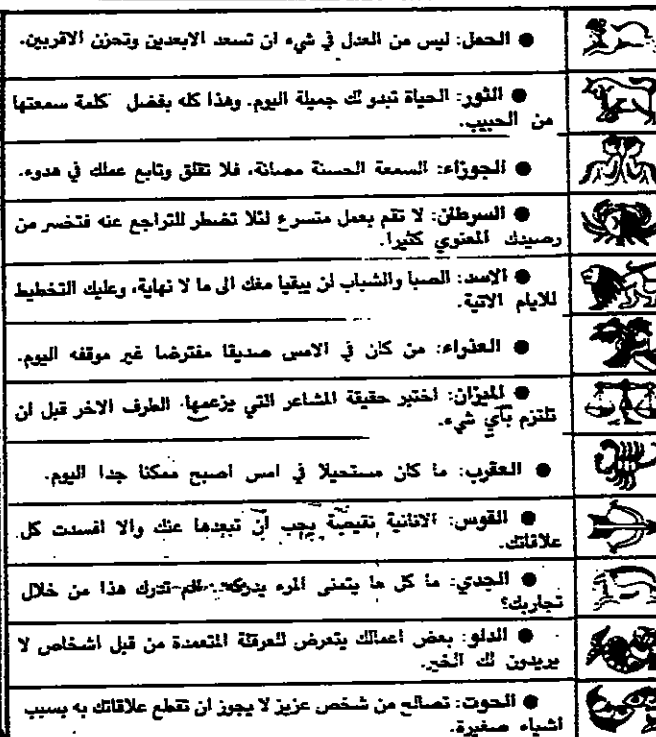 ● الحمل: ليس من العدل في شيء ان تسعد الابعدين وتحزن الاقربين.
● الثور: الحياة تبدو لك جميلة اليوم. وهذا كله بفضل كلمة سمعتها
من الحبيب.
● الجوزاء: السمعة الحسنة مصانة، فلا تقلق وتابع عملك في هدوء.
● السرطان: لا تقم بعمل متسرع لئلا تضطر للتراجع عنه فتخسر من
رصيدك المعنوي كثيرا.
● الاسد: الصبا والشباب لن يبقيا معك الى ما لا نهاية، وعليك التخطيط
للايام الاتية.
● العذراء: من كان في الامس صديقا مفترضا غير موقفه اليوم.
● الميزان: اختبر حقيقة المشاعر التي يزعمها الطرف الاخر قبل ان
تلتزم بأي شيء.
● العقرب: ما كان مستحيلا في امس اصبح ممكنا جدا اليوم.
● القوس: الانانية نقيصة يجب أن تبعدها عنك والا افسدت كل
علاقاتك.
● الجدي: ما كل ما يتمنى المرء يدركه. الم تدرك هذا من خلال
تجاربك؟
● الدلو: بعض اعمالك يتعرض للعرقلة المتعمدة من قبل اشخاص لا
يريدون لك الخير.
● الحوت: تصالح من شخص عزيز لا يجوز ان تقطع علاقاتك به بسبب
اشياء صغيرة.